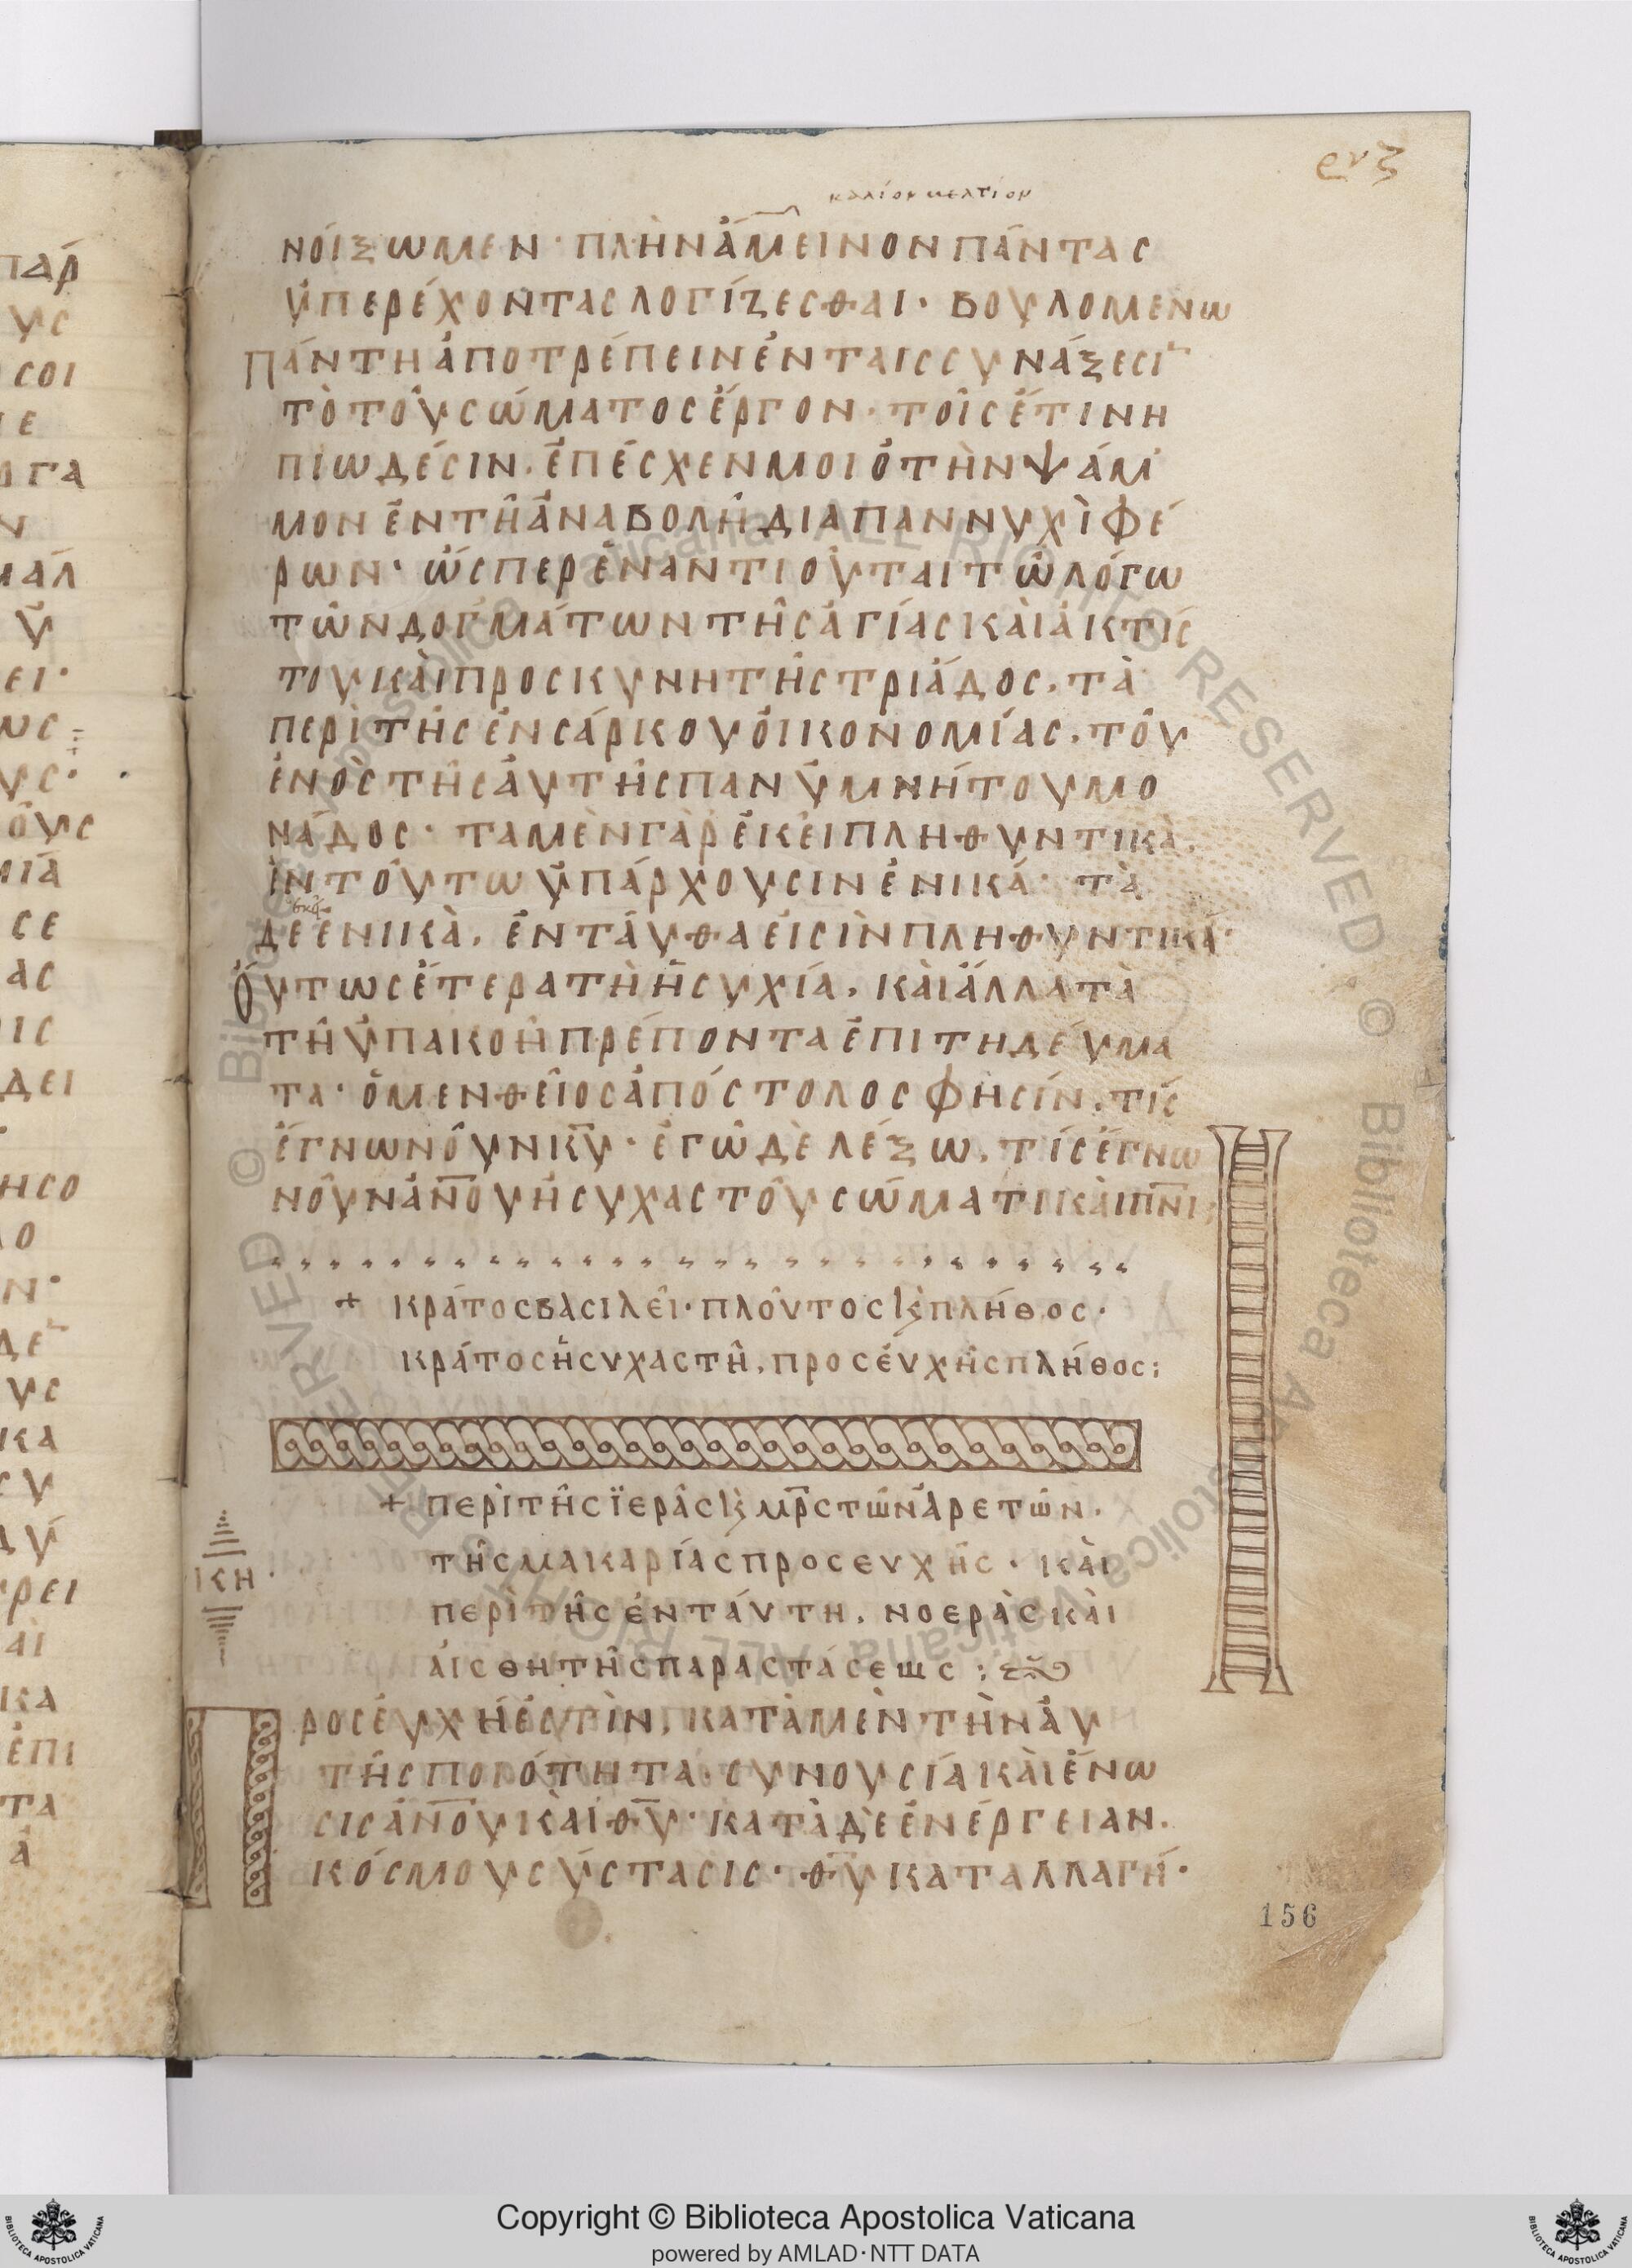 ενζ
νόιξωμεν· πλὴν ἄμεινον πάντας
ὑπερέχοντας λογίζεσθαι· βουλομενω
πάντη ἀποτρέπειν ἐν ταις συνάξεσι
τὸ τοῦ σώματος ἔργον· τοῖς ἔτι νη
πιωδέσιν. ἐπέσχεν μοι ὁ τὴν ψάμ
μον ἐν τῆ ἀναβολῆ διαπαννυχὶ φέ
ρων· ὥσπερ ἐναντιοῦται τῶ λόγω
τῶν δογμάτων τῆς ἁγίας καὶ ἀκτίσ
του καὶ προσκυνητῆς τριάδος, τὰ
περὶ τῆς ἐνσάρκου οἰκονομίας, τοῦ
ἑνὸς τῆς αὐτῆς πανυμνήτου μο
νάδος· τα μὲν γὰρ ἐκεῖ πληθυντικὰ,
ἐν τούτω ὑπάρχουσιν ἑνικά· τὰ
δε ἑνικὰ, ἐνταῦθα εἰσὶν πληθυντικά·
Οὕτως ἕτερα τὴ ἡσυχία, καὶ ἄλλα τὰ
τῆ ὑπακοῆ πρέποντα ἐπιτηδεύμα
τα· ὁ μεν θεῖος ἀπόστολος φησίν, τίς
ἔγνω νοῦν κυ· ἐγὼ δὲ λέξω, τίς ἔγνω
νοῦν ἀνου ἡσυχαστοῦ σώματι καὶ πνι;
+ κράτος βασιλεῖ· πλοῦτος κ πλήθος·
κράτος ἡσυχαστῆ, προσευχῆς πλήθος;
+ περὶ τῆς ϊερᾶς κ μρς τῶν ἀρετῶν.
τῆς μακαρίας προσευχῆς· καὶ
κη
περὶ τῆς ἐν ταύτη, νοερὰς καὶ
αἰσθητῆς παραστάσεως:
Προσευχή ἐστὶν, κατὰ μὲν τὴν αὐ
τῆς ποιότητα· συνουσία καὶ ἕνω
σις ἀνου καὶ θυ· κατὰ δὲ ἐνέργειαν.
κόσμου σύστασις· θυ καταλλαγή·
156
Copyright © Biblioteca Apostolica Vaticana
powered by AMLAD·NTT DATA